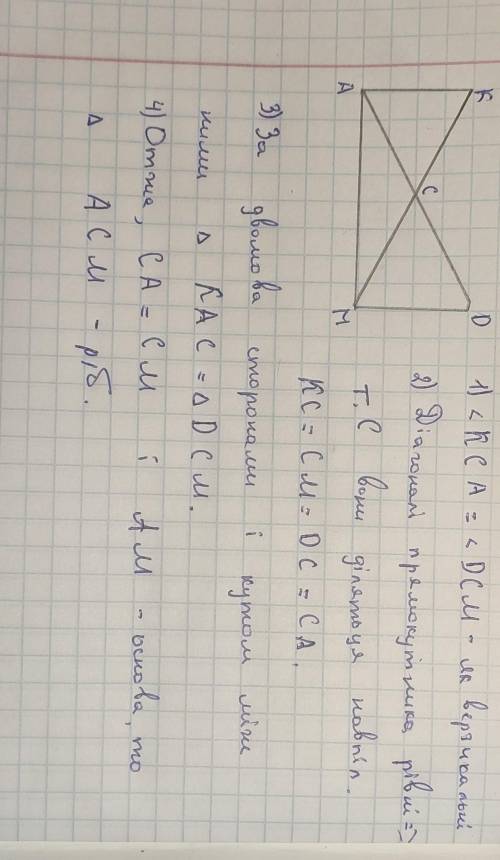 K
D
C
A
M
1) < K C A = < D C M - як вертикальні
2) Діагоналі прямокутника рівні =>
т. С вони діляться навпіл.
KC = CM = DC = CA.
3) За двомова сторонами і кутом між
ними Δ KAC = Δ DCM.
4) Отже, CA = CM і AM - основа, то
Δ ACM - р/б.